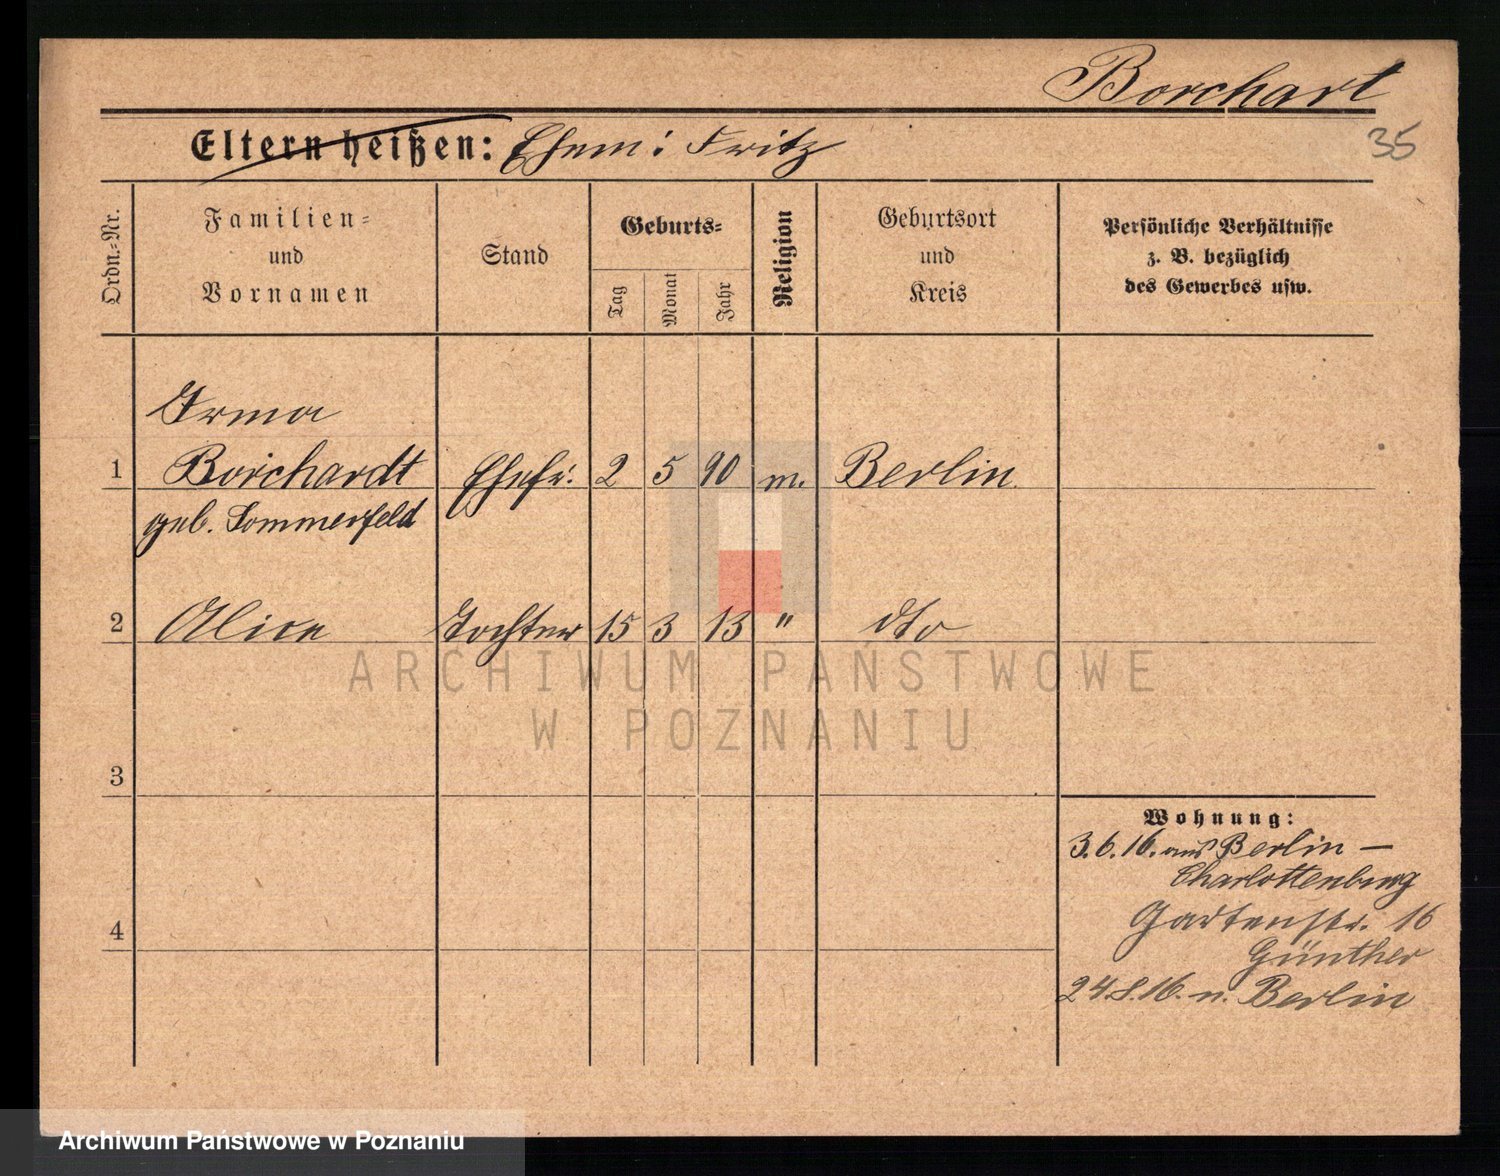 Borchart
35
Eltern heißen: Ehem: Fritz
Ordn.-Nr.
Familien-
und
Vornamen
Stand
Geburts-
Tag
Monat
Jahr
Religion
Geburtsort
und
Kreis
Persönliche Verhältnisse
z. B. bezüglich
des Gewerbes usw.
Irma
1 Borchardt Ehefr. 2 5 90 m. Berlin
geb. Sommerfeld
2 Alice Tochter 15 3 13 " dto
ARCHIWUM PAŃSTWOWE
W POZNANIU
3
Wohnung:
3.6.16. aus Berlin –
Charlottenburg
4
Gartenstr. 16
Günther
24.8.16. n. Berlin
Archiwum Państwowe w Poznaniu